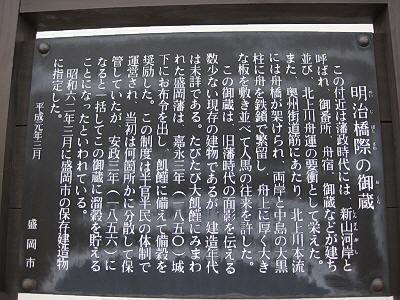 明治橋際の御蔵
めいじばしぎわ お くら
この付近は藩政時代には、新山河岸と
呼ばれ、御番所、舟宿、御蔵などが建ち
並び、北上川舟運の要衝として栄えた。
また、奥州街道筋にあたり、北上川本流
には舟橋が架けられ、両岸と中島の大黒
柱に舟を鉄鎖で繋留し、舟上に厚く大き
な板を敷き並べて人馬の往来を許した。
この御蔵は、旧藩時代の面影を伝える
数少ない現存の建物であるが、建造年代
は未詳である。たびたび大飢饉にみまわ
れた盛岡藩は、嘉永三年(一八五〇)城
下にお布令を出し、飢饉に備えて備穀を
奨励した。この制度は半官半民の体制で
運営され、当初は何箇所かに分散して保
管していたが、安政三年(一八五六)に
なると一括してこの御蔵に溜穀を貯える
ことになったといわれている。
昭和六二年三月に盛岡市の保存建造物
に指定した。
平成元年三月
盛岡市